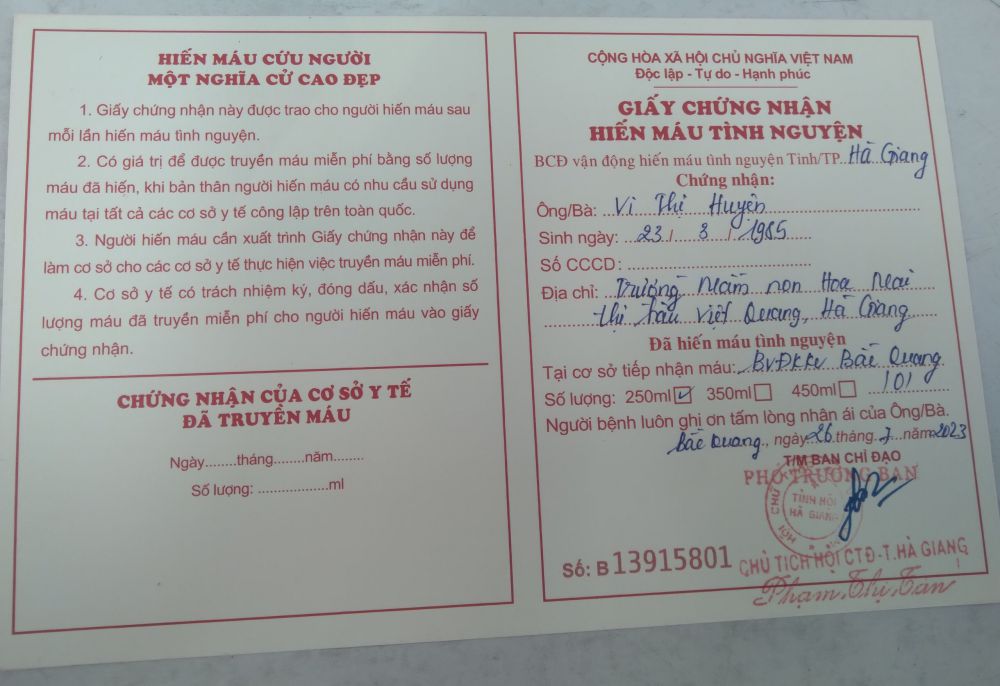 HIẾN MÁU CỨU NGƯỜI
MỘT NGHĨA CỬ CAO ĐẸP
1. Giấy chứng nhận này được trao cho người hiến máu sau
mỗi lần hiến máu tình nguyện.
2. Có giá trị để được truyền máu miễn phí bằng số lượng
máu đã hiến, khi bản thân người hiến máu có nhu cầu sử dụng
máu tại tất cả các cơ sở y tế công lập trên toàn quốc.
3. Người hiến máu cần xuất trình Giấy chứng nhận này để
làm cơ sở cho các cơ sở y tế thực hiện việc truyền máu miễn phí.
4. Cơ sở y tế có trách nhiệm ký, đóng dấu, xác nhận số
lượng máu đã truyền miễn phí cho người hiến máu vào giấy
chứng nhận.
CHỨNG NHẬN CỦA CƠ SỞ Y TẾ
ĐÃ TRUYỀN MÁU
Ngày........tháng........năm........
Số lượng: ..................ml
CỘNG HÒA XÃ HỘI CHỦ NGHĨA VIỆT NAM
Độc lập - Tự do - Hạnh phúc
GIẤY CHỨNG NHẬN
HIẾN MÁU TÌNH NGUYỆN
BCĐ vận động hiến máu tình nguyện Tỉnh/TP. Hà Giang
Chứng nhận:
Ông/Bà: Vi Thị Huyên
Sinh ngày: 23 / 8 / 1985
Số CCCD:
Địa chỉ: Trường Mầm non Hoa Mai
thị trấn Việt Quang, Hà Giang
Đã hiến máu tình nguyện
Tại cơ sở tiếp nhận máu: BVĐKKV Bắc Quang
Số lượng: 250ml ☑ 350ml ☐ 450ml ☐ 101
Người bệnh luôn ghi ơn tấm lòng nhân ái của Ông/Bà.
Bắc Quang, ngày 26 tháng 7 năm 2023
T/M BAN CHỈ ĐẠO
PHÓ TRƯỞNG BAN
TỈNH HỘI
HÀ GIANG
Số: B 13915801
CHỦ TỊCH HỘI CTĐ-T.HÀ GIANG
Phạm Thị Tan